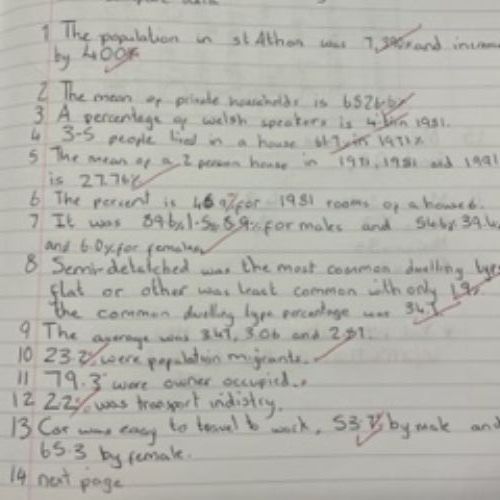 1 The population in st Athan was 7,3 and increa
by 400%
2 The mean of private households is 6526.6%
3 A percentage of welsh speakers is 4 in 1981.
4 3-5 people lied in a house 61.7 in 1971%
5 The mean of a 2 person house in 1971, 1981 and 1991
is 27.76%
6 The percent is 46% for 1981 rooms of a house 6.
7 It was 396% 1.5% 8.9% for males and 54.6% 39.4
and 6.0% for females
8 Semi-detatched was the most common dwelling type
flat or other was least common with only 1.9%
the common dwelling type percentage was 34.7
9 The average was 3.47, 3.06 and 2.87.
10 23.2% were population migrants.
11 79.3 were owner occupied.
12 22% was transport indistry.
13 Car was easy to travel to work, 53.7% by male and
65.3 by female.
14 next page